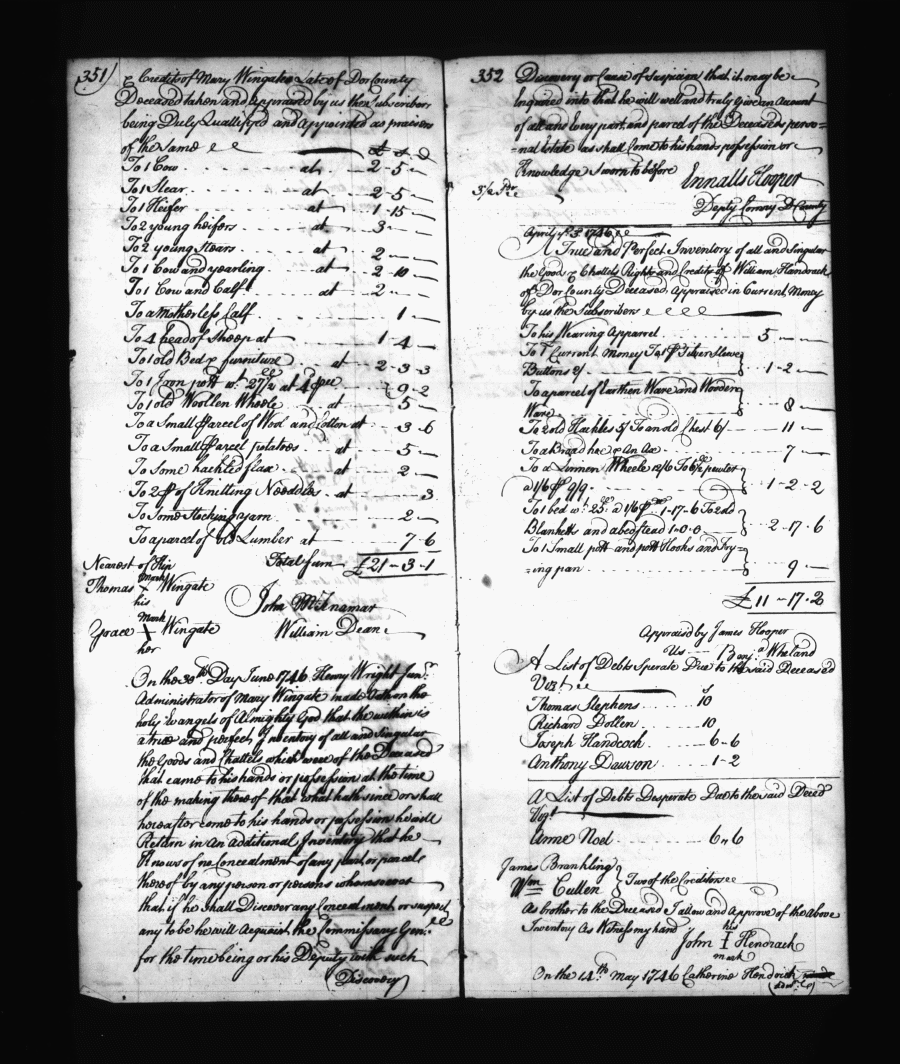 351
& Credits of Mary Wingate Late of Dor County
Deceased taken and appraised by us the Subscribers
being Duly Quallifyed and Appointed as praisers
of the Same £ s D
To 1 Cow at 2 - 5 -
To 1 Stear at 2 - 5 -
To 1 Heifer at 1 - 15 -
To 2 young heifers at 3 -
To 2 young Stears at 2 -
To 1 Cow and yearling at 2 - 10 -
To 1 Cow and Calf at 2 -
To a Motherless Calf 1 -
To 4 head of Sheep at 1 - 4 -
To 1 old Bed & furniture at 2 - 3 - 3
To 1 Iron pott wt. 27 1/2 at 4 9 - 2
To 1 old Woollen Wheele at 5 -
To a Small Parcel of Wool and Cotton at 3 - 6
To a Small Parcel potatoes at 5 -
To Some hackled flax at 2 -
To 2 of Knitting Needdles at 3
To Some Stocking yarn 2 -
To a parcel of old Lumber at 7 - 6
Total sum £21 - 3 - 1
Nearest of Kin
mark
Thomas X Wingate
his
mark
Grace X Wingate
her
John McKnamar
William Dean
On the 30th Day June 1746 Henry Wright Junr.
Administrator of Mary Wingate made Oath on the
holy Evangels of Almighty God that the within is
a true and perfect Inventory of all and Singular
the Goods and Chattels which were of the Deceased
that came to his hands or possession at the time
of the making thereof that what hath since or shall
hereafter come to his hands or possession he will
Return in An Additional Inventory that he
Knows of no Concealment of any part or parcel
thereof by any person or persons whomsoever
that if he shall Discover any Concealment or suspect
any to be he will Acquaint the Commissary Genl.
for the time being or his Deputy with such
Discovery
352
Discovery or Cause of Suspicion that it may be
Enquired into that he will well and truly Give an Acount
of all and Every part and parcel of the Deceaseds perso=
=nal Estate as shall Come to his hands possession or
Knowledge Sworn to before
Ennalls Hooper
Depty Comry D County
April ye 3d 1746
A True and Perfect Inventory of all and Singular
the Goods & Chattels Rights and Credits of William Handcock
of Dor County Deceased Appraised in Current Money
by us the Subscribers
To his Wearing Apparrel 5 -
To Current money To 1 Silver Sleeve
Buttons 2/ 1 - 2 -
To a parcel of Earthen Ware and Wooden
Ware 8 -
To 2 old Hackles 5/ To an old Chest 6/ 11 -
To a Broad hoe & An Axe 7 -
To a Linnen Wheele 12/6 To 6 1/2 pewter
a 1/6 9/9 1 - 2 - 2
To 1 bed wt. 25 a 1/6 1-17-6 To 2 old
Blanketts and a bedstead 1-0-0 2 - 17 - 6
To 1 Small pott and pott Hooks and Fry=
=ing pan 9 -
£11 - 17 - 2
Appraisd by James Hooper
Us Benja. Wheland
A List of Debts Sperate Due to the said Deceased
Vizt
Thomas Stephens 10
Richard Dollen 10
Joseph Handcock 6 - 6
Anthony Dawson 1 - 2
A List of Debts Desperate Due to the said Deced
Vizt
Anne Noel 6 " 6
James Brankling
Wm Cullen } Two of the Creditors
As brother to the Deceased I allow and Approve of the Above
Inventory As Witness my hand
his
John I Hendrack
mark
On the 14th May 1746 Catherine Hendrick